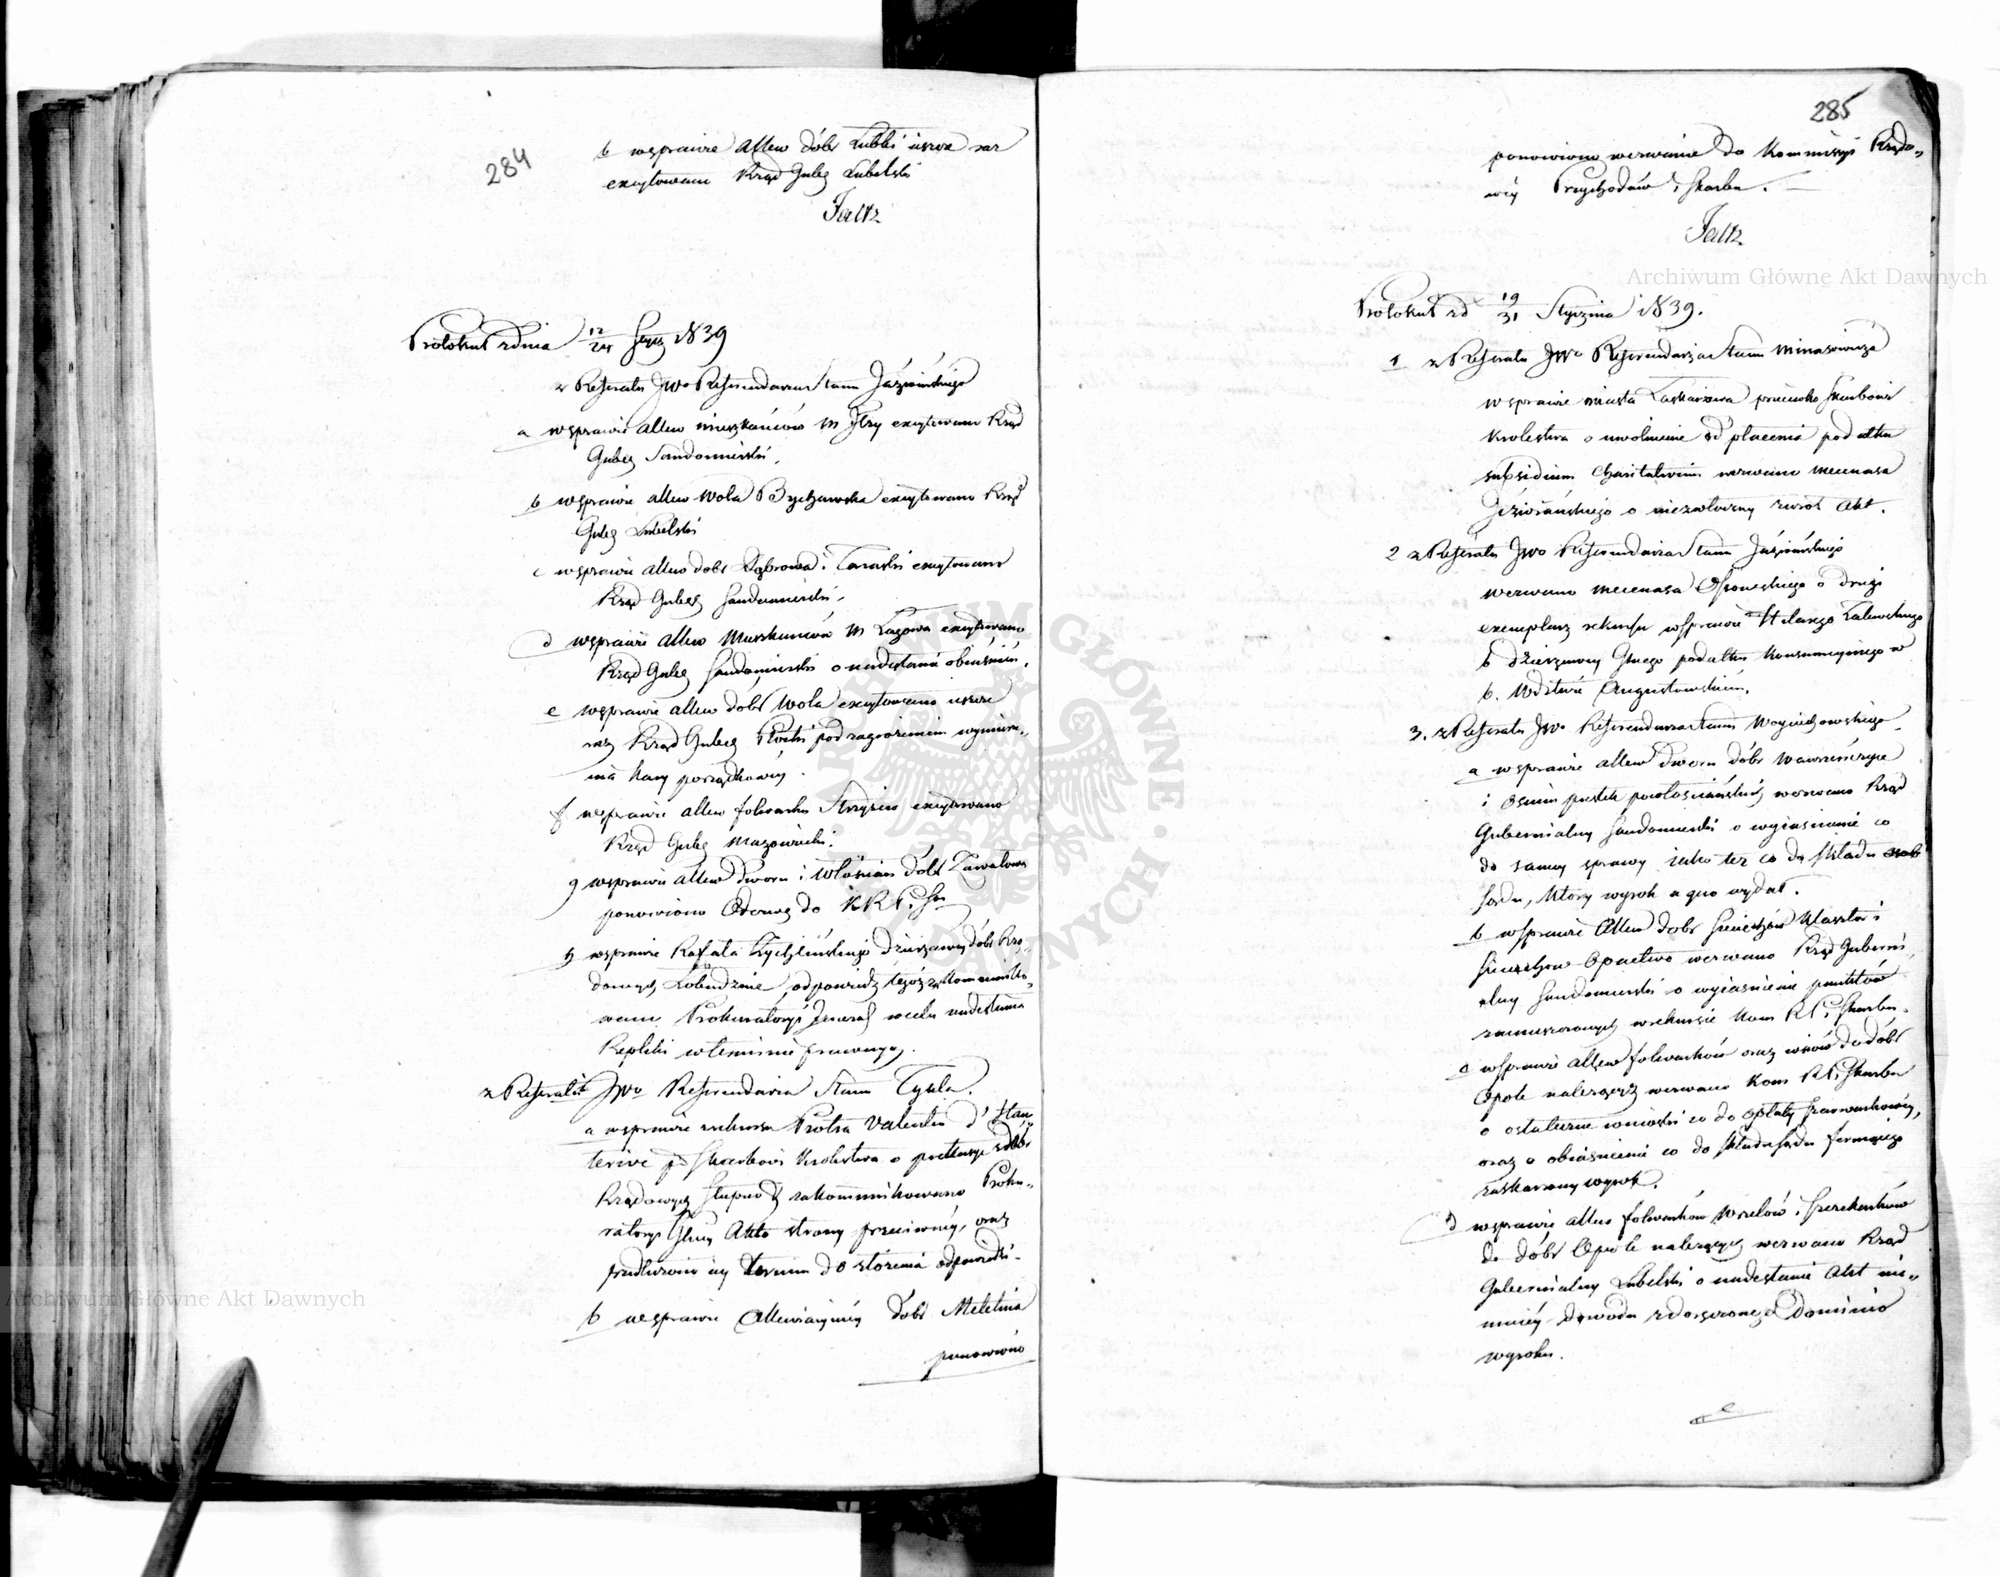 284
b w sprawie allew dóbr Lubki ieszcze raz
excytowano Rząd Guber Lubelski
Faltz
Protokuł z dnia 12/24 Stycz 1839
z Referatu JWo Referendarza Stanu Jaźwińskiego
a w sprawie allew mieszkańców m Iłży excytowano Rząd
Guber Sandomierski.
b w sprawie allew Wola Bychawska excytowano Rząd
Guber Lubelski
c w sprawie allew dóbr Dąbrowa i Taraski excytowano
Rząd Guber Sandomierski.
d w sprawie allew Mieszkańców m Łagowa excytowano
Rząd Guber Sandomierski o nadesłanie obiaśnień.
e w sprawie allew dóbr Wola excytowano ieszcze
raz Rząd Guber Płocki pod zagrożeniem wymierze-
nia kary porządkowej.
f w sprawie allew folwarku Strzyżew excytowano
Rząd Guber Mazowiecki.
g w sprawie allew dworu i Włościan dóbr Zawałowa
ponowiono Odezwę do KRP i Sk
h w sprawie Rafała Zychlińskiego dzierżawcy dóbr Rzą-
dowych, odpowiedź tegoż zakommuniko-
wano Prokuratoryi Jeneral w celu nadesłania
Repliki w terminie prawnym.
z Referatu JWo Referendarza Stanu Tykla.
a w sprawie rekursu Piotra Valentin d' Hau
terive p Skarbowi Królestwa o pretensye z dóbr
Rządowych Słupno zakommunikowano Proku-
ratoryi Głnej Akta strony przeciwnej, oraz
przedłużono iey termin do złożenia odpowiedzi.
b w sprawie Allewiacyinej dóbr Meletina
ponowiono
285
ponowiono wezwanie do Kommissyi Rządo-
wej Przychodów i Skarbu.
Faltz
Protokuł z d 19/31 Stycznia 1839.
1 z Referatu JWo Referendarza Stanu Minasowicza
w sprawie miasta Laskarzewa przeciwko Skarbowi
Królestwa o uwolnienie od płacenia podatku
subsidium Charitativum wezwano mecenasa
Jeziorańskiego o niezwłoczny zwrot Akt.
2 z Referatu JWo Referendarza Stanu Jaźwińskiego
wezwano mecenasa Osowskiego o drugi
exemplarz rekursu w sprawie Hilarego Zalewskiego
b dzierżawcy Głnego podatku konsumcyinego w
b. Wdztwie Augustowskiem.
3. z Referatu JWo Referendarza Stanu Woyciechowskiego
a w sprawie allew dworu dóbr Wawrzeńczyce
i Osmiu pustek powłościańskich wezwano Rząd
Gubernialny Sandomierski o wyiaśnienie co
do samey sprawy iako też co do składu
sądu, który wyrok a quo wydał.
b w sprawie Allew dóbr Sieciechów Klasztor i
Sieciechow Opactwo wezwano Rząd Guberni
alny Sandomierski o wyiaśnienie punktów
zamieszczonych w rekursie Kom RP i Skarbu.
c w sprawie allew folwarków oraz wsiów do dóbr
Opole należących wezwano Kom RP i Skarbu
o ostateczne wnioski co do opłaty szarwarkowej,
oraz o obiaśnienie co do składu sądu feruiącego
zaskarżony wyrok.
d w sprawie allew folwarków Wrzelów i Szczekarków
do dóbr Opole należących wezwano Rząd
Gubernialny Lubelski o nadesłanie Akt nie-
mniej dowodu z doręczonego Dominio
wyroku.